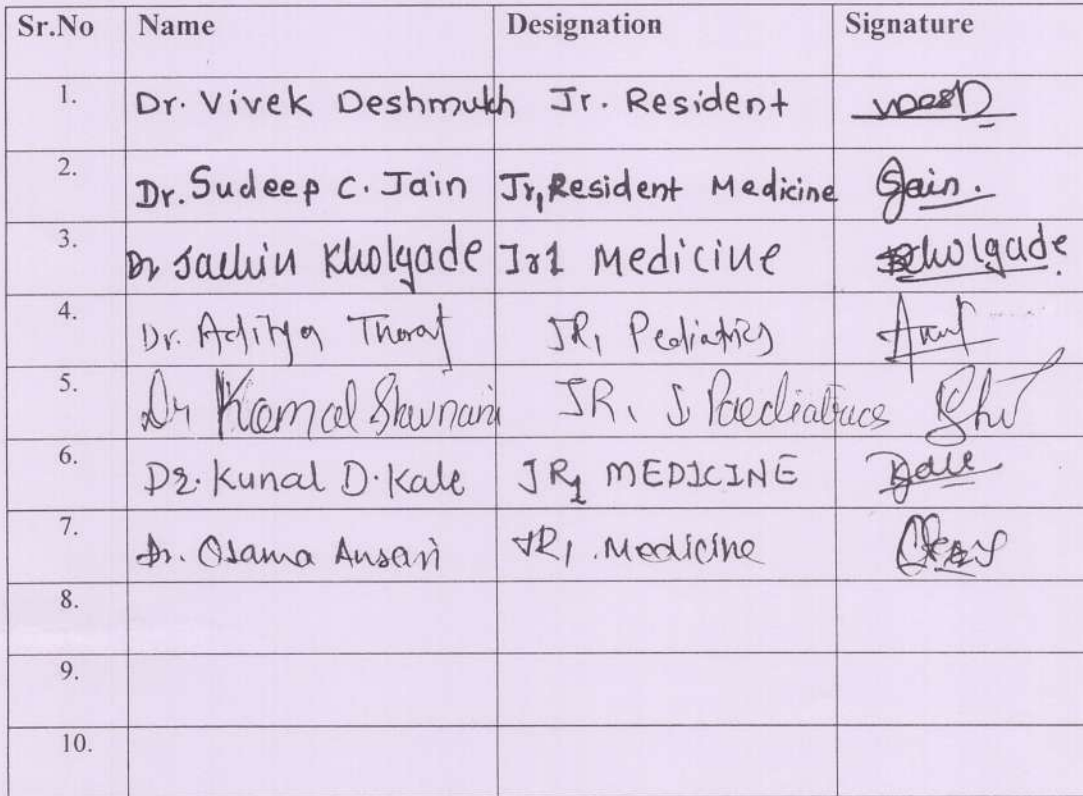 Sr.No Name Designation Signature
1. Dr. Vivek Deshmukh Jr. Resident
2. Dr. Sudeep C. Jain Jr1 Resident Medicine Jain.
3. Dr Sachin Kholgade Jr1 Medicine Kholgade
4. Dr. Aditya Thorat JR1 Pediatrics
5. Dr Kamal JR1 Paediatrics
6. Dr. Kunal D. Kale JR1 MEDICINE Kale
7. Dr. Osama Ansari JR1 Medicine
8.
9.
10.